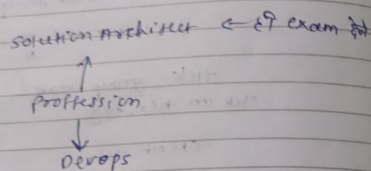 Solution Architect ← ही exam देने
Proffession
Devops